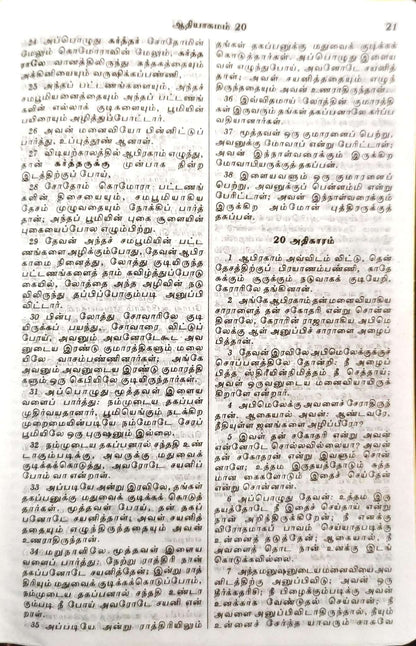 ஆதியாகமம் 20
21
24 அப்பொழுது கர்த்தர் சோதோமின்
மேலும் கொமோராவின் மேலும், கர்த்த
ராலே வானத்திலிருந்து கந்தகத்தையும்
அக்கினியையும் வருஷிக்கப்பண்ணி,
25 அந்தப் பட்டணங்களையும், அந்தச்
சமபூமியனைத்தையும் அந்தப் பட்டணங்
களின் எல்லாக் குடிகளையும், பூமியின்
பயிரையும் அழித்துப்போட்டார்.
26 அவன் மனைவியோ பின்னிட்டுப்
பார்த்து, உப்புத்தூண் ஆனாள்.
27 விடியற்காலத்தில் ஆபிரகாம் எழுந்து,
தான் கர்த்தருக்கு முன்பாக நின்ற
இடத்திற்குப் போய்,
28 சோதோம் கொமோரா பட்டணங்
களின் திசையையும், சமபூமியாகிய
தேசம் முழுவதையும் நோக்கிப் பார்த்
தான்; அந்தப் பூமியின் புகை சூளையின்
புகையைப்போல எழும்பிற்று.
29 தேவன் அந்தச் சமபூமியின் பட்ட
ணங்களை அழிக்கும்போது, தேவன் ஆபிர
காமை நினைத்து, லோத்து குடியிருந்த
பட்டணங்களைத் தாம் கவிழ்த்துப்போடு
கையில், லோத்தை அந்த அழிவின் நடு
விலிருந்து தப்பிப்போகும்படி அனுப்பி
விட்டார்.
30 பின்பு லோத்து சோவாரிலே குடி
யிருக்கப் பயந்து, சோவாரை விட்டுப்
போய், அவனும் அவனோடேகூட அவ
னுடைய இரண்டு குமாரத்திகளும் மலை
யிலே வாசம்பண்ணினார்கள்; அங்கே
அவனும் அவனுடைய இரண்டு குமாரத்தி
களும் ஒரு கெபியிலே குடியிருந்தார்கள்.
31 அப்பொழுது மூத்தவள் இளைய
வளைப் பார்த்து: நம்முடைய தகப்பன்
முதிர்வயதானார், பூமியெங்கும் நடக்கிற
முறைமையின்படியே நம்மோடே சேரப்
பூமியிலே ஒரு புருஷனும் இல்லை.
32 நம்முடைய தகப்பனால் சந்ததி உண்
டாகும்படிக்கு, அவருக்கு மதுவைக்
குடிக்கக்கொடுத்து, அவரோடே சயனிப்
போம் வா என்றாள்.
33 அப்படியே அன்று இரவிலே, தங்கள்
தகப்பனுக்கு மதுவைக் குடிக்கக் கொடுத்
தார்கள். மூத்தவள் போய், தன் தகப்
பனோடே சயனித்தாள்; அவள் சயனித்
ததையும் எழுந்திருந்ததையும் அவன்
உணராதிருந்தான்.
34 மறுநாளிலே மூத்தவள் இளைய
வளைப் பார்த்து: நேற்று ராத்திரி நான்
தகப்பனோடே சயனித்தேன்; இன்று ராத்
திரியும் மதுவைக் குடிக்கக்கொடுப்போம்,
நம்முடைய தகப்பனால் சந்ததி உண்டா
கும்படி நீ போய் அவரோடே சயனி என்
றாள்.
35 அப்படியே அன்று ராத்திரியிலும்
தங்கள் தகப்பனுக்கு மதுவைக் குடிக்கக்
கொடுத்தார்கள். அப்பொழுது இளைய
வள் எழுந்துபோய், அவனோடே சயனித்
தாள்; அவள் சயனித்ததையும் எழுந்
திருந்ததையும் அவன் உணராதிருந்தான்.
36 இவ்விதமாய் லோத்தின் குமாரத்தி
கள் இருவரும் தங்கள் தகப்பனாலே கர்ப்ப
வதியானார்கள்.
37 மூத்தவள் ஒரு குமாரனைப் பெற்று,
அவனுக்கு மோவாப் என்று பேரிட்டாள்;
அவன் இந்நாள்வரைக்கும் இருக்கிற
மோவாபியருக்குத் தகப்பன்.
38 இளையவளும் ஒரு குமாரனைப்
பெற்று, அவனுக்குப் பென்னம்மி என்று
பேரிட்டாள்; அவன் இந்நாள்வரைக்கும்
இருக்கிற அம்மோன் புத்திரருக்குத்
தகப்பன்.
20 அதிகாரம்
1 ஆபிரகாம் அவ்விடம் விட்டு, தென்
தேசத்திற்குப் பிரயாணம்பண்ணி, காதே
சுக்கும் சூருக்கும் நடுவாகக் குடியேறி,
கேராரிலே தங்கினான்.
2 அங்கே ஆபிரகாம் தன் மனைவியாகிய
சாராளைத் தன் சகோதரி என்று சொன்ன
தினாலே, கேராரின் ராஜாவாகிய அபிமெ
லேக்கு ஆள் அனுப்பிச் சாராளை அழைப்
பித்தான்.
3 தேவன் இரவிலே அபிமெலேக்குக்குச்
சொப்பனத்திலே தோன்றி: நீ அழைப்
பித்த ஸ்திரீயினிமித்தம் நீ செத்தாய்;
அவள் ஒருவனுடைய மனைவியாயிருக்
கிறாளே என்றார்.
4 அபிமெலேக்கு அவளைச் சேராதிருந்
தான். ஆகையால் அவன்: ஆண்டவரே,
நீதியுள்ள ஜனங்களை அழிப்பீரோ?
5 இவள் தன் சகோதரி என்று அவன்
என்னோடே சொல்லவில்லையா? அவன்
தன் சகோதரன் என்று இவளும் சொன்
னாளே; உத்தம இருதயத்தோடும் சுத்த
மான கைகளோடும் இதைச் செய்தேன்
என்று சொன்னான்.
6 அப்பொழுது தேவன்: உத்தம இரு
தயத்தோடே நீ இதைச் செய்தாய் என்று
நான் அறிந்திருக்கிறேன்; நீ எனக்கு
விரோதமாகப் பாவம் செய்யாதபடிக்கு
உன்னைத் தடுத்தேன்; ஆகையால், நீ
அவளைத் தொட நான் உனக்கு இடங்
கொடுக்கவில்லை.
7 அந்த மனுஷனுடைய மனைவியை அவ
னிடத்திற்கு அனுப்பிவிடு; அவன் ஒரு
தீர்க்கதரிசி; நீ பிழைக்கும்படிக்கு அவன்
உனக்காக வேண்டுதல் செய்வான்; நீ
அவளை அனுப்பிவிடாதிருந்தால், நீயும்
உன்னைச் சேர்ந்த யாவரும் சாகவே